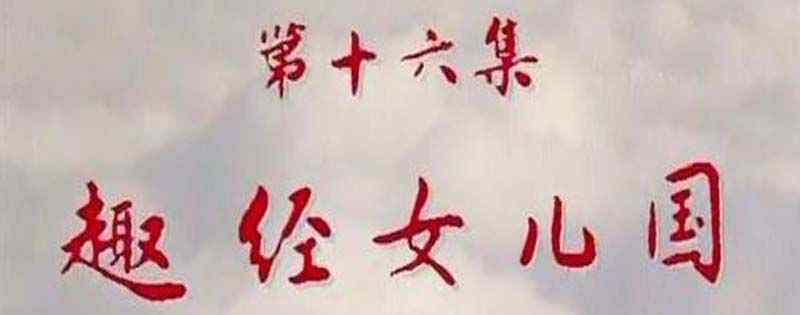 第十六集
趣经女儿国